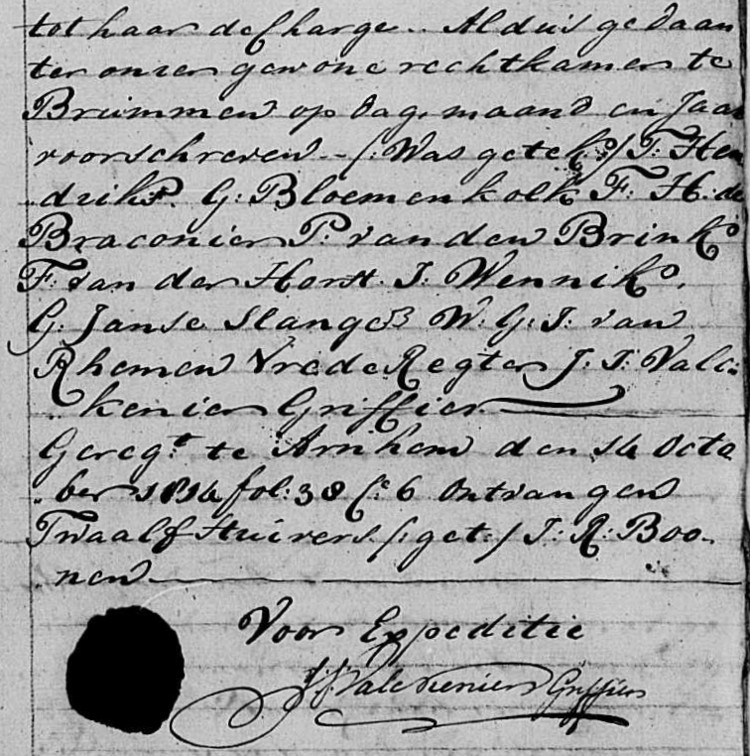 tot haar decharge.. Aldus gedaan
ter onzer gewone rechtkamer te
Brummen op dag, maand en Jaar
voorschreven -- (: Was getekd:) T: Hen
driks. G: Bloemenkolk F: H: de
Braconier P: van den Brink
F: van der Horst. J: Wennik.
G: Janse Slanges W: G: J: van
Rhemen Vrede Regter J: J: Valc
kenier Griffier
Geregt. te Arnhem den 14 Octo
ber 1814 fol: 38 Ce 6 Ontvangen
Twaalf Stuivers. (: get:) J: R: Boo.
nen
Voor Expeditie
J: J: Valckenier Griffier